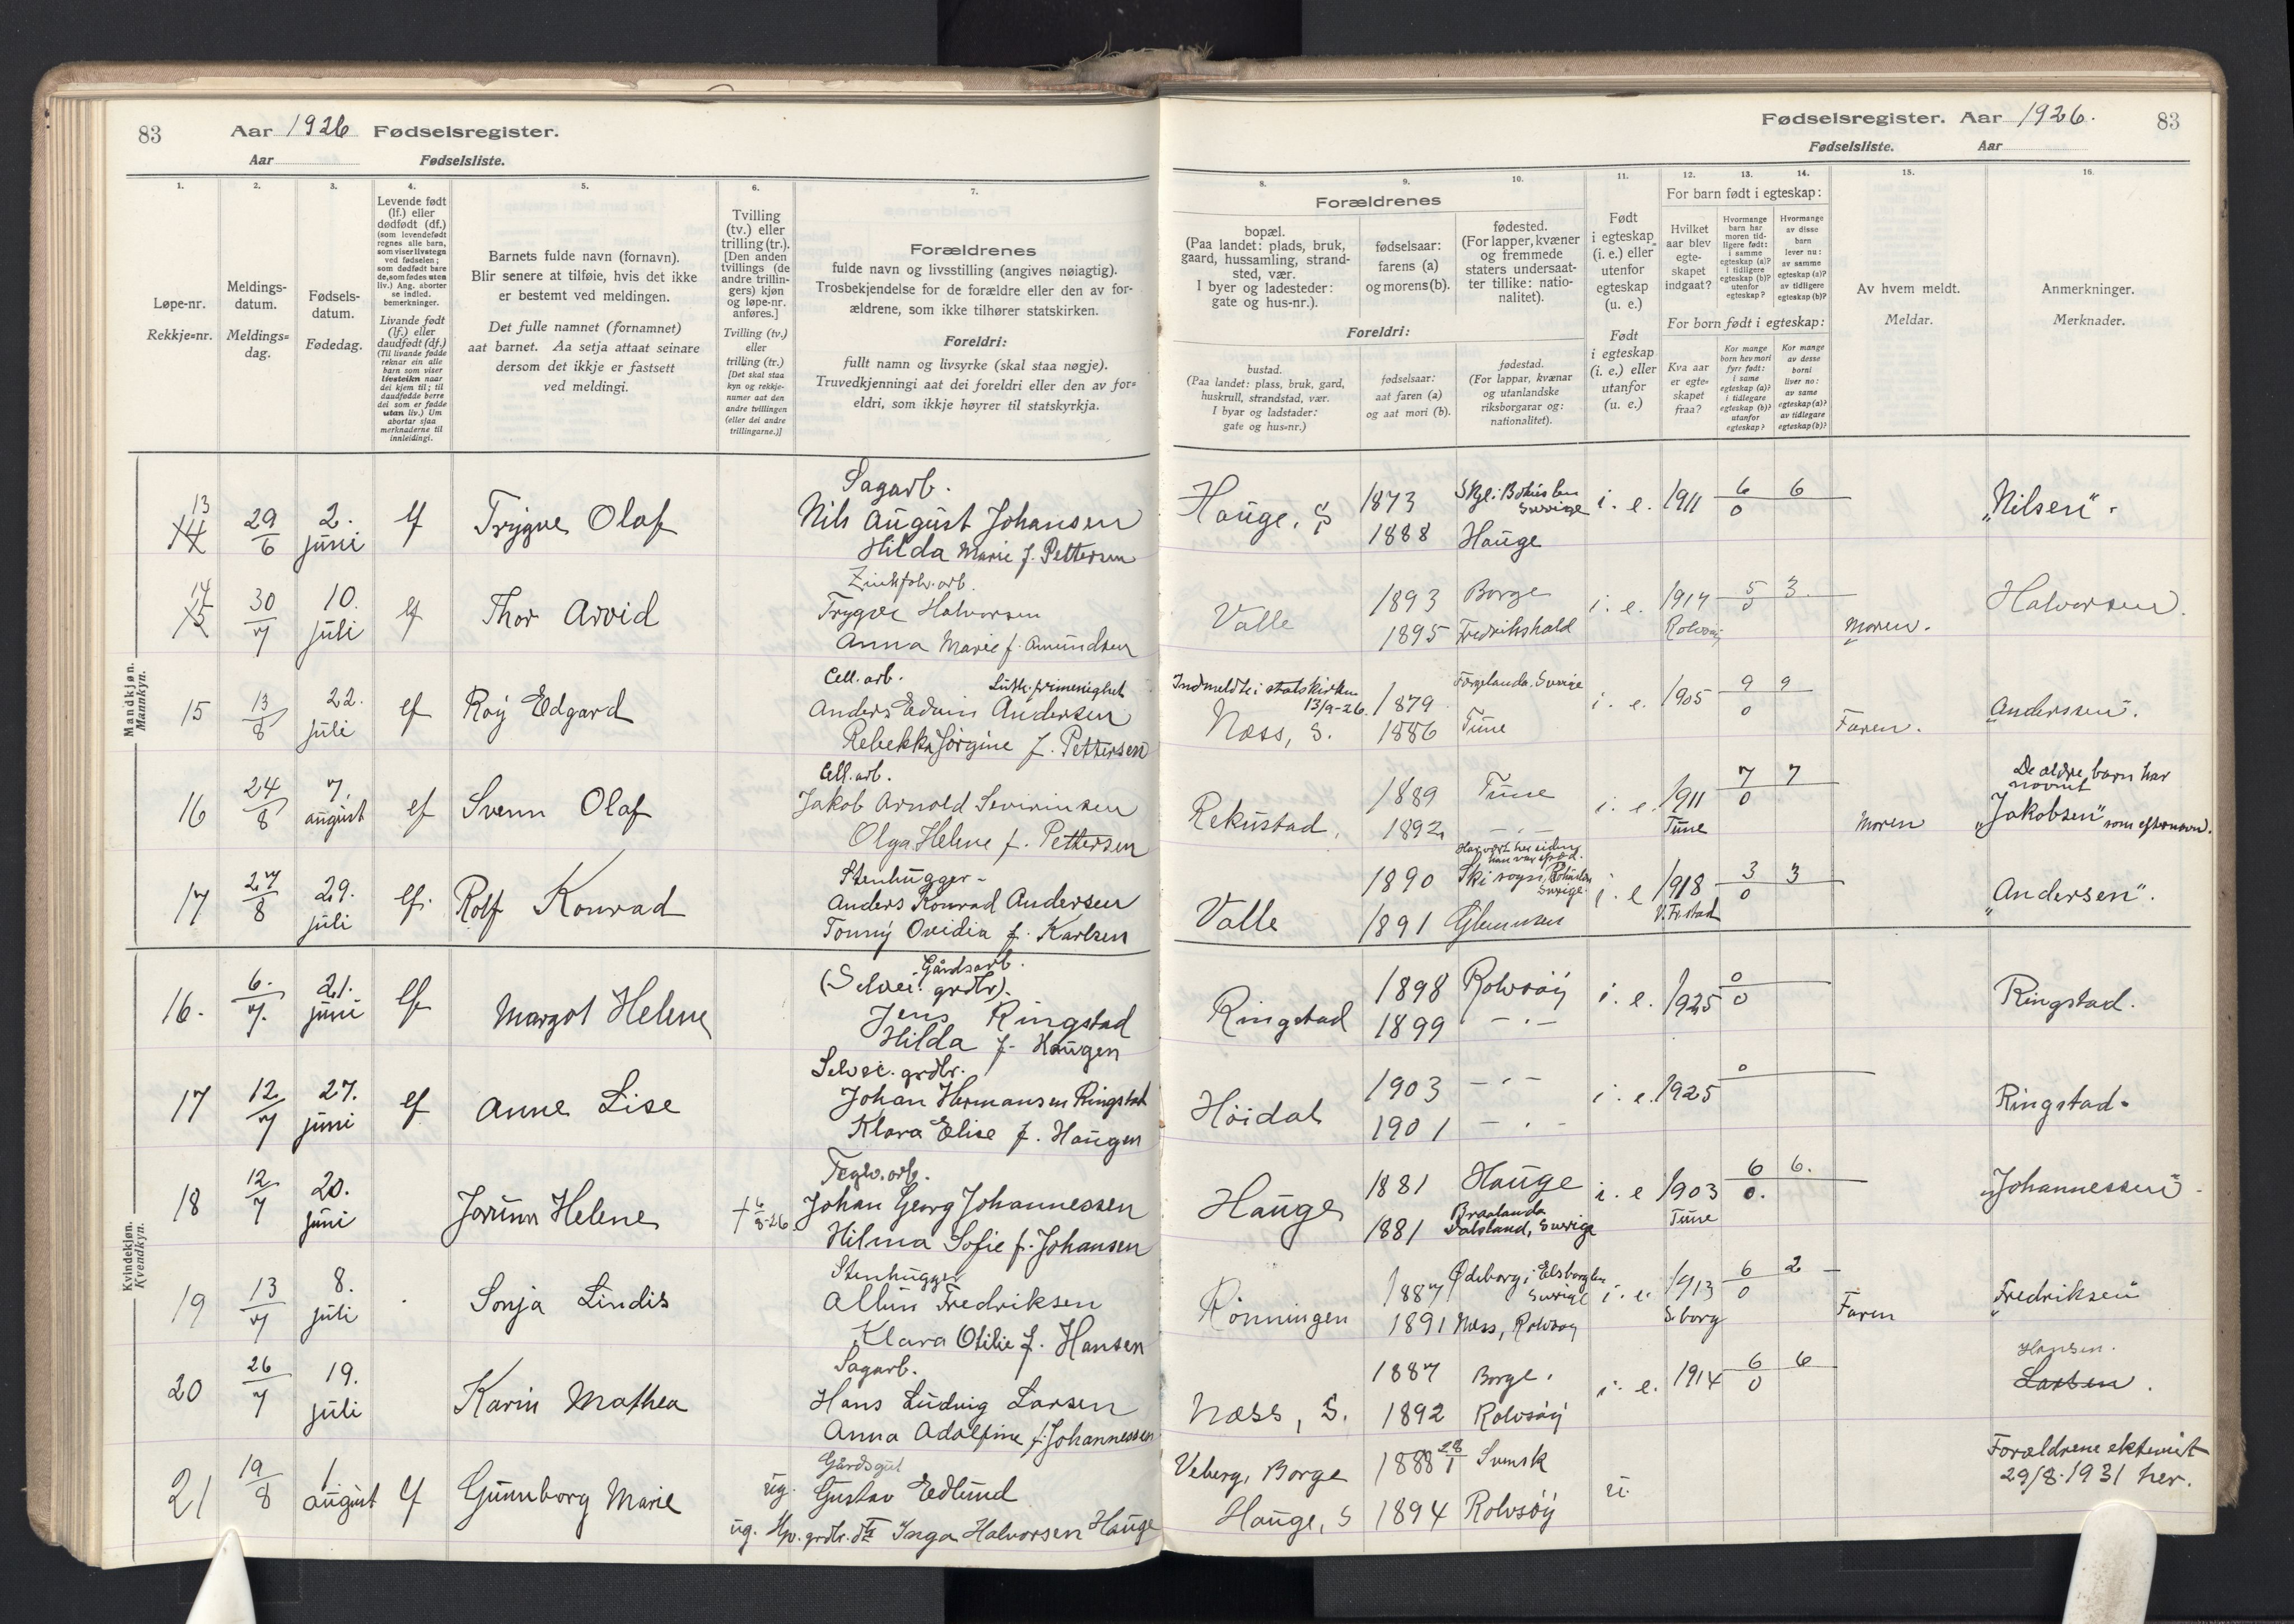 83 Aar 1926 Fødselsregister.
Aar Fødselsliste.
Fødselsregister. Aar 1926. 83
Fødselsliste. Aar
1.
Løpe-nr.
Rekkje=nr.
2.
Meldings-
datum.
Meldings=
dag.
3.
Fødsels-
datum.
Fødedag.
4.
Levende født
(lf.) eller
dødfødt (df.)
(som levendefødt
regnes alle barn,
som viser livstegn
ved fødselen;
som dødfødt bare
de, som fødes uten
liv.) Ang. aborter
se indled.
bemerkninger.
Livande født
(lf.) eller
daudfødt (df.)
(Til livande fødde
reknar ein alle
barn som viser
livsteikn naar
dei kjem til; til
daudfødde berre
dei som er fødde
utan liv.) Um
abortar sjaa
merknaderne til
innleidingi.
5.
Barnets fulde navn (fornavn).
Blir senere at tilføie, hvis det ikke
er bestemt ved meldingen.
Det fulle namnet (fornamnet)
aat barnet. Aa setja attaat seinare
dersom det ikkje er fastsett
ved meldingi.
6.
Tvilling
(tv.) eller
trilling (tr.).
[Den anden
tvillings (de
andre trillin-
gers) kjøn
og løpe-nr.
anføres.]
Tvilling (tv.)
eller
trilling (tr.)
[Det skal staa
kyn og rekkje-
numer aat den
andre tvillingen
(eller dei andre
trillingarne.)]
7.
Forældrenes
fulde navn og livsstilling (angives nøiagtig).
Trosbekjendelse for de forældre eller den av for-
ældrene, som ikke tilhører statskirken.
Foreldri:
fullt namn og livsyrke (skal staa nøgje).
Truvedkjenningi aat dei foreldri eller den av for=
eldri, som ikkje høyrer til statskyrkja.
Forældrenes
8.
bopæl.
(Paa landet: plads, bruk,
gaard, hussamling, strand-
sted, vær.
I byer og ladesteder:
gate og hus-nr.).
9.
fødselsaar:
farens (a)
og morens (b).
10.
fødested.
(For lapper, kvæner
og fremmede
staters undersaat-
ter tillike: natio-
nalitet).
Foreldri:
bustad.
(Paa landet: plass, bruk, gard,
huskrull, strandstad, vær.
I byar og ladstader:
gate og hus=nr.)
fødselsaar:
aat faren (a)
og aat mori (b).
fødestad.
(For lappar, kvænar
og utanlandske
riksborgarar og:
nationalitet).
11.
Født
i egteskap
(i. e.) eller
utenfor
egteskap
(u. e.)
Født
i egteskap
(i. e.) eller
utanfor
(u. e.)
12. 13. 14.
For barn født i egteskap:
Hvilket
aar blev
egte-
skapet
indgaat?
Hvormange
barn har
moren tid-
ligere født:
i samme
egteskap (a)?
i tidligere
egteskap (b)?
utenfor
egteskap?
Hvormange
av disse
barn
lever nu:
av samme
egteskap (a)?
av tidligere
egteskap (b)?
For born født i egteskap:
Kva aar
er egte-
skapet
fraa?
Kor mange
born hev mori
fyrr født:
i same
egteskap (a)?
i tidlegare
egteskap (b)?
utanfor
egteskap?
Kor mange
av desse
borni
liver no:
av same
egteskap (a)?
av tidlegare
egteskap (b)?
15.
Av hvem meldt.
Meldar.
16.
Anmerkninger.
Merknader.
Mandkjøn.
Mannkyn.
13 14 29/6 2. juni lf Trygve Olaf
Sagarb.
Nils August Johansen
Hilda Marie f. Pettersen
Hauge, S 1873 1888 Hauge
Sverige
i. e. 1911 6 6 0 „Nilsen".
14 15 30/7 10. juli lf Thor Arvid
Trygve Halvorsen
Anna Marie f. Amundsen
Valle 1893 Borge
1895 Fredrikshald
i. e. 1914 Rolvsøy 5 3 0 Moren. Halvorsen.
15 13/8 22. juli lf Roy Edgard
Cell. arb. Luth. frimenighet
Anders Edvin Andersen
Rebekka Jørgine f. Pettersen
Indmeldt i statskirken
13/9-26.
Næss, S. 1879 Færgelanda. Sverige
1886 Tune
i. e. 1905 9 9 0 Faren. „Anderssen".
16 24/8 7. august lf Svenn Olaf
Cell. arb.
Jakob Arnold Severinsen
Olga Helene f. Pettersen
Rekustad, 1889 Tune
1892 — . —
i. e. 1911 Tune 7 7 0 Moren
De ældre barn har
navnet
„Jakobsen" som efternavn.
17 27/8 29. juli lf. Rolf Konrad
Stenhugger
Anders Konrad Andersen
Tonny Ovidia f. Karlsen
Valle 1890
Har vært her siden
han var spæd.
Sverige
1891 Glemmen
i. e 1918 V. Fr.stad 3 3 0 „Andersen".
Kvindekjøn.
Kvendkyn.
16. 6./7. 21. juni lf Margot Helene
Gårdsarb.
(Selvei. grdbr).
Jens Ringstad
Hilda f. Haugen
Ringstad 1898 Rolvsøy
1899 — . —
i. e. 1925 0 0 Ringstad.
17 12/7 27. juni lf Anne Lise
Selvei. grdbr.
Johan Hermansen Ringstad
Klara Elise f. Haugen
Höidal 1903 — . —
1901 — . —
i. e. 1925 0 Ringstad.
18 12/7 20. juni Jorunn Helene
Teglv. arb.
Johan Georg Johannessen
Hilma Sofie f. Johansen
Hauge 1881 Hauge
1881 Braalanda
Dalsland, Sverige
i. e 1903 Tune 6 6. 0. „Johannessen"
19 13/7 8. juli Sonja Lindis
Stenhugger
Albin Fredriksen
Klara Otilie f. Hansen
Rönningen 1887 Ødeborg i Elsborglen
Sverige
1891 Næss, Rolvsøy
i. e. 1913 S.borg 6 2 0 Faren „Fredriksen"
20 26/7 19. juli Karin Mathea
Sagarb.
Hans Ludvig Larsen
Anna Adolfine f. Johannessen
Næss, S. 1887 Borge.
1892 Rolvsøy
i. e. 1914 6 6 0
Hansen.
Larsen.
21 19/8 1. august lf Gunnborg Marie
Gårdsgut
ug. Gustav Edlund
ug. Hv. grdbr. dtr Inga Halvorsen Hauge
Veberg, Borge 1888 28/1 Svensk
Hauge, S 1894 Rolvsøy
u.
Forældrene ekteviet
29/8.1931 her.